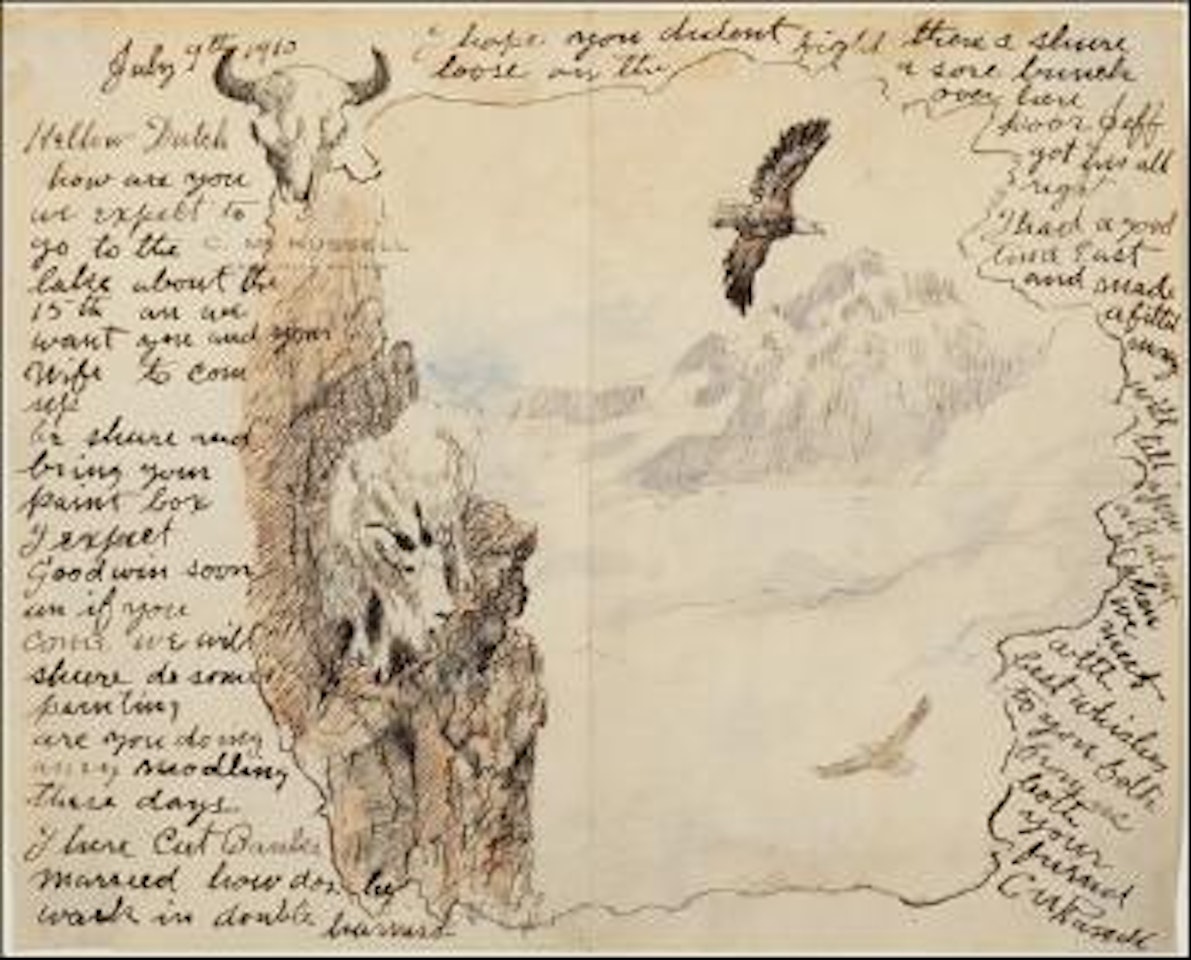 July 9th 1910
Hellow Dutch
how are you
we expect to
go to the
lake about the
15th an we
want you and your
wife to com
up
be shure and
bring your
paint box
I expect
Goodwin soon
an if you
come we will
shure do some
painting
are you doing
any modling
these days
I here Cut Bank
married how dos he
work in double harness
I hope you dident bight
loose on the
theres shure
a sore bunch
over here
poor Jeff
got his all
right
I had a good
time East
and made
a fiew
with
tell you
all about
when
we
meet
with
best whishes
to you both
from me
your
friend
C M Russell
C. M. RUSSELL